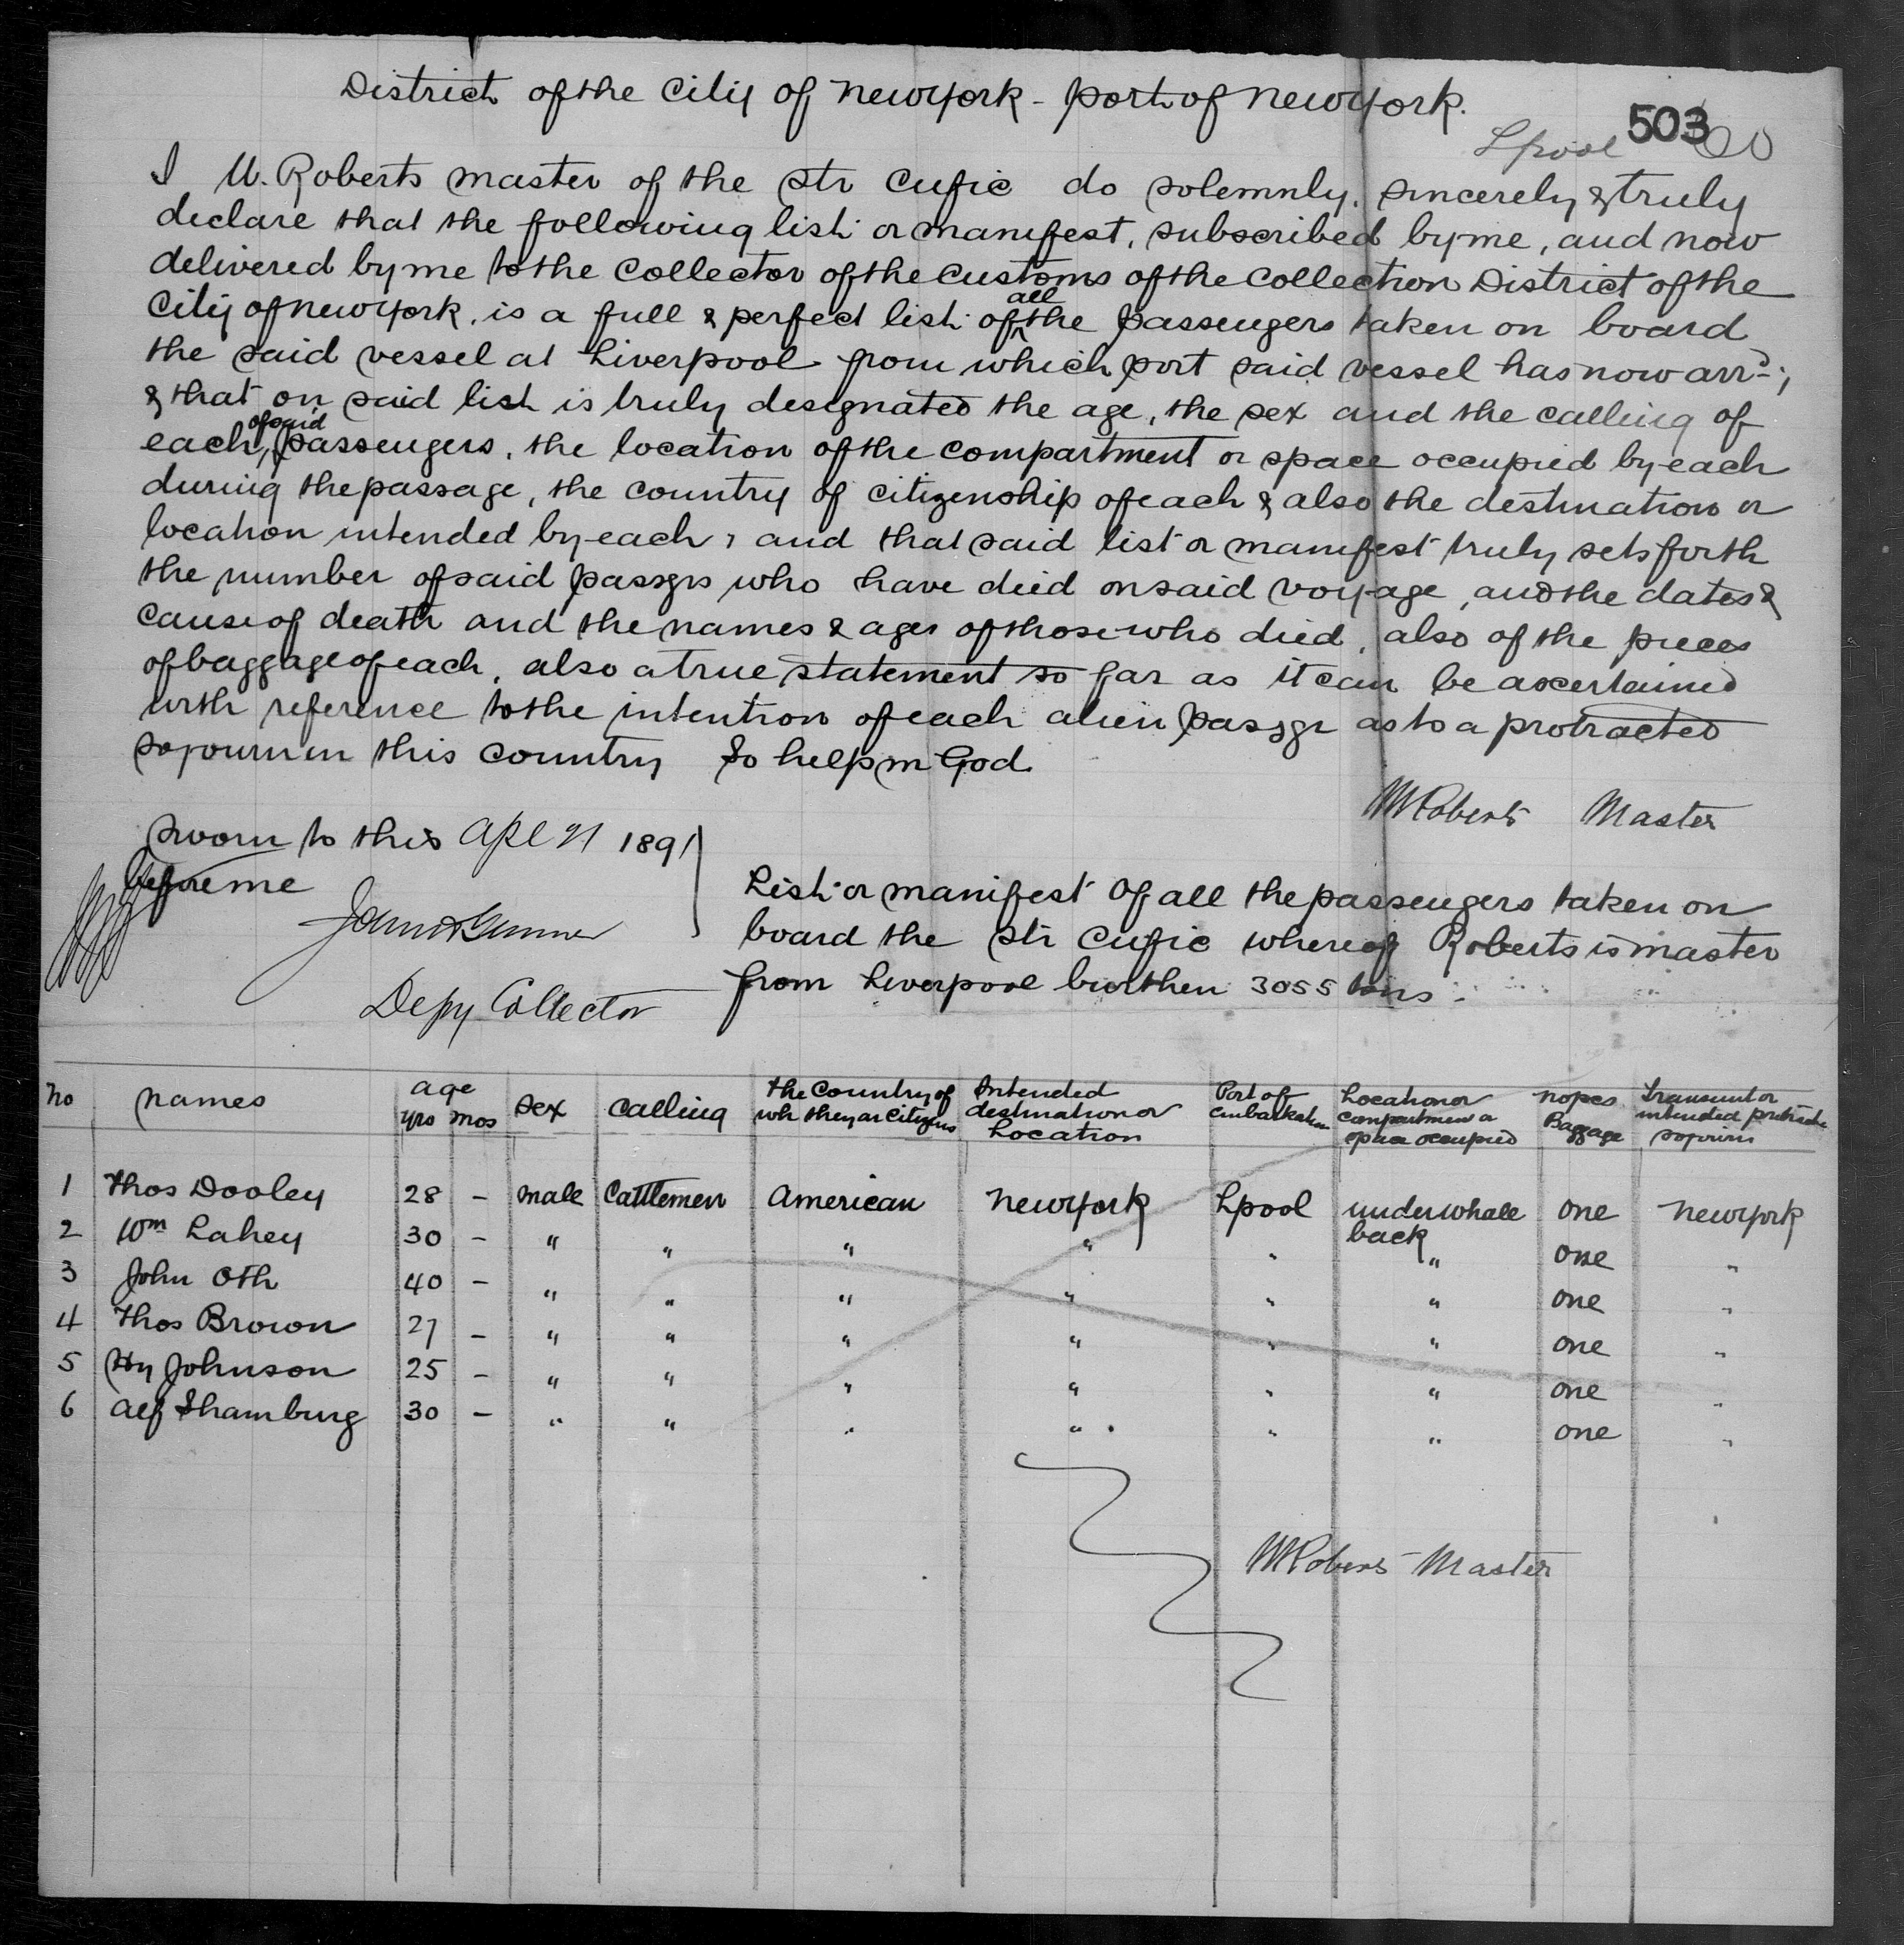 District of the City of New York - port of New York.
503
Lpool
I W. Roberts master of the Str Cufic do solemnly, sincerely & truly
declare that the following list or manifest, subscribed by me, and now
delivered by me to the Collector of the Customs of the Collection District of the
City of New York, is a full & perfect list of all the passengers taken on board
the said vessel at Liverpool from which port said vessel has now arrd;
& that on said list is truly designated the age, the sex and the calling of
each of said passengers, the location of the compartment or space occupied by each
during the passage, the country of citizenship of each & also the destination or
location intended by each, and that said list or manifest truly sets forth
the number of said passgrs who have died on said voyage, and the dates &
cause of death and the names & ages of those who died, also of the pieces
of baggage of each, also a true statement so far as it can be ascertained
with reference to the intention of each alien passgr as to a protracted
sojourn in this country So help m God.
WRoberts Master
Sworn to this Apl 21 1891
before me
Depy Collector
List or manifest of all the passengers taken on
board the Str Cufic whereof Roberts is master
from Liverpool burthen 3055 tons.
No names age yrs mos sex calling the Country of wh they ar Citizens Intended destination or Location Port of Embarkation Location or compartmen or space occupied no pcs Baggage Transient or intended protracted sojourn
1 Thos Dooley 28 - male Cattlemen American New York Lpool under whale back one New York
2 Wm Lahey 30 - " " " " " " one "
3 John Oth 40 - " " " " " " one "
4 Thos Brown 27 - " " " " " " one "
5 Hy Johnson 25 - " " " " " " one "
6 Alf Shamburg 30 - " " " " " " one "
WRoberts Master